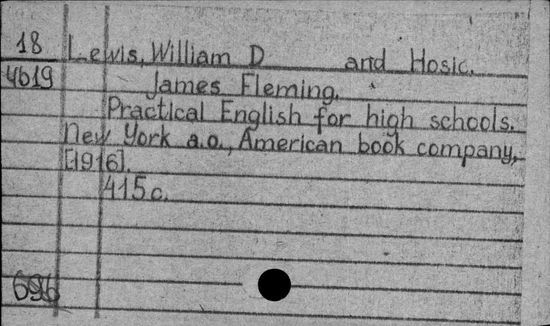 18 Lewis, William D and Hosic,
4619 James Fleming.
Practical English for high schools.
New York a.o., American book company,
[1916].
415 c.